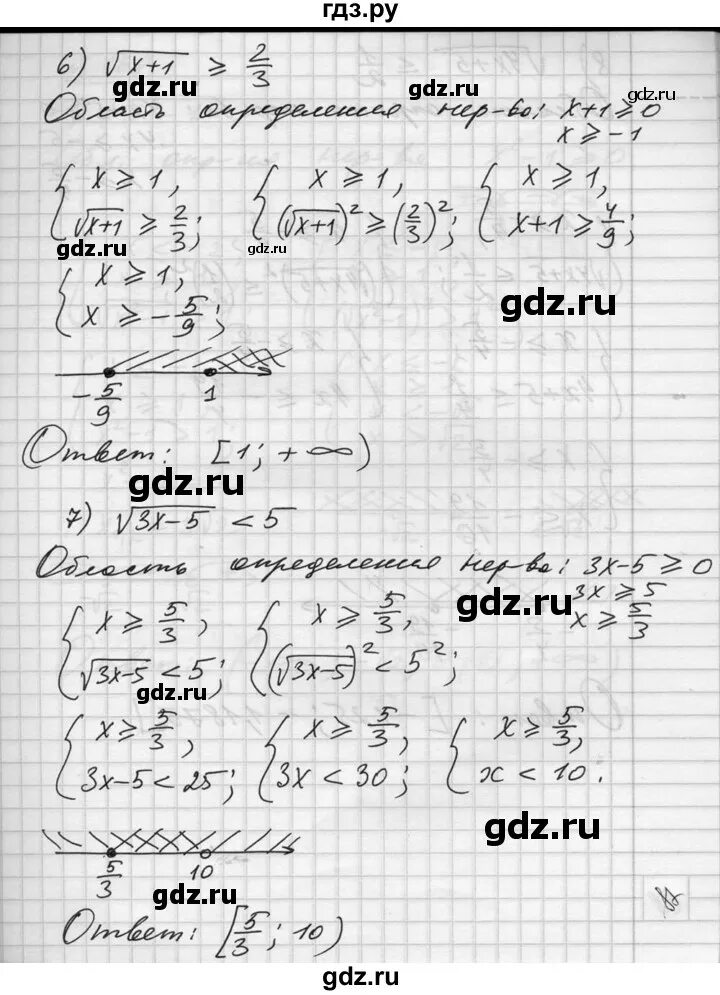 гдз.ру
6) √(x+1) ≥ 2/3
gdz.ru gdz.ru
Область определения нер-ва: x+1 ≥ 0
x ≥ -1
{ x ≥ 1, { x ≥ 1, { x ≥ 1,
√(x+1) ≥ 2/3; (√(x+1))² ≥ (2/3)²; x+1 ≥ 4/9;
gdz.ru gdz.ru
{ x ≥ 1,
x ≥ -5/9;
gdz.ru
-5/9 1
Ответ: [1; +∞)
gdz.ru
7) √(3x-5) < 5
Область определения нер-ва: 3x-5 ≥ 0
gdz.ru
3x ≥ 5
x ≥ 5/3
{ x ≥ 5/3, { x ≥ 5/3,
√(3x-5) < 5; (√(3x-5))² < 5²;
gdz.ru
{ x ≥ 5/3, { x ≥ 5/3, { x ≥ 5/3,
3x-5 < 25; 3x < 30; x < 10.
gdz.ru
5/3 10
gdz.ru
Ответ: [5/3; 10)
gdz.ru
gdz.ru